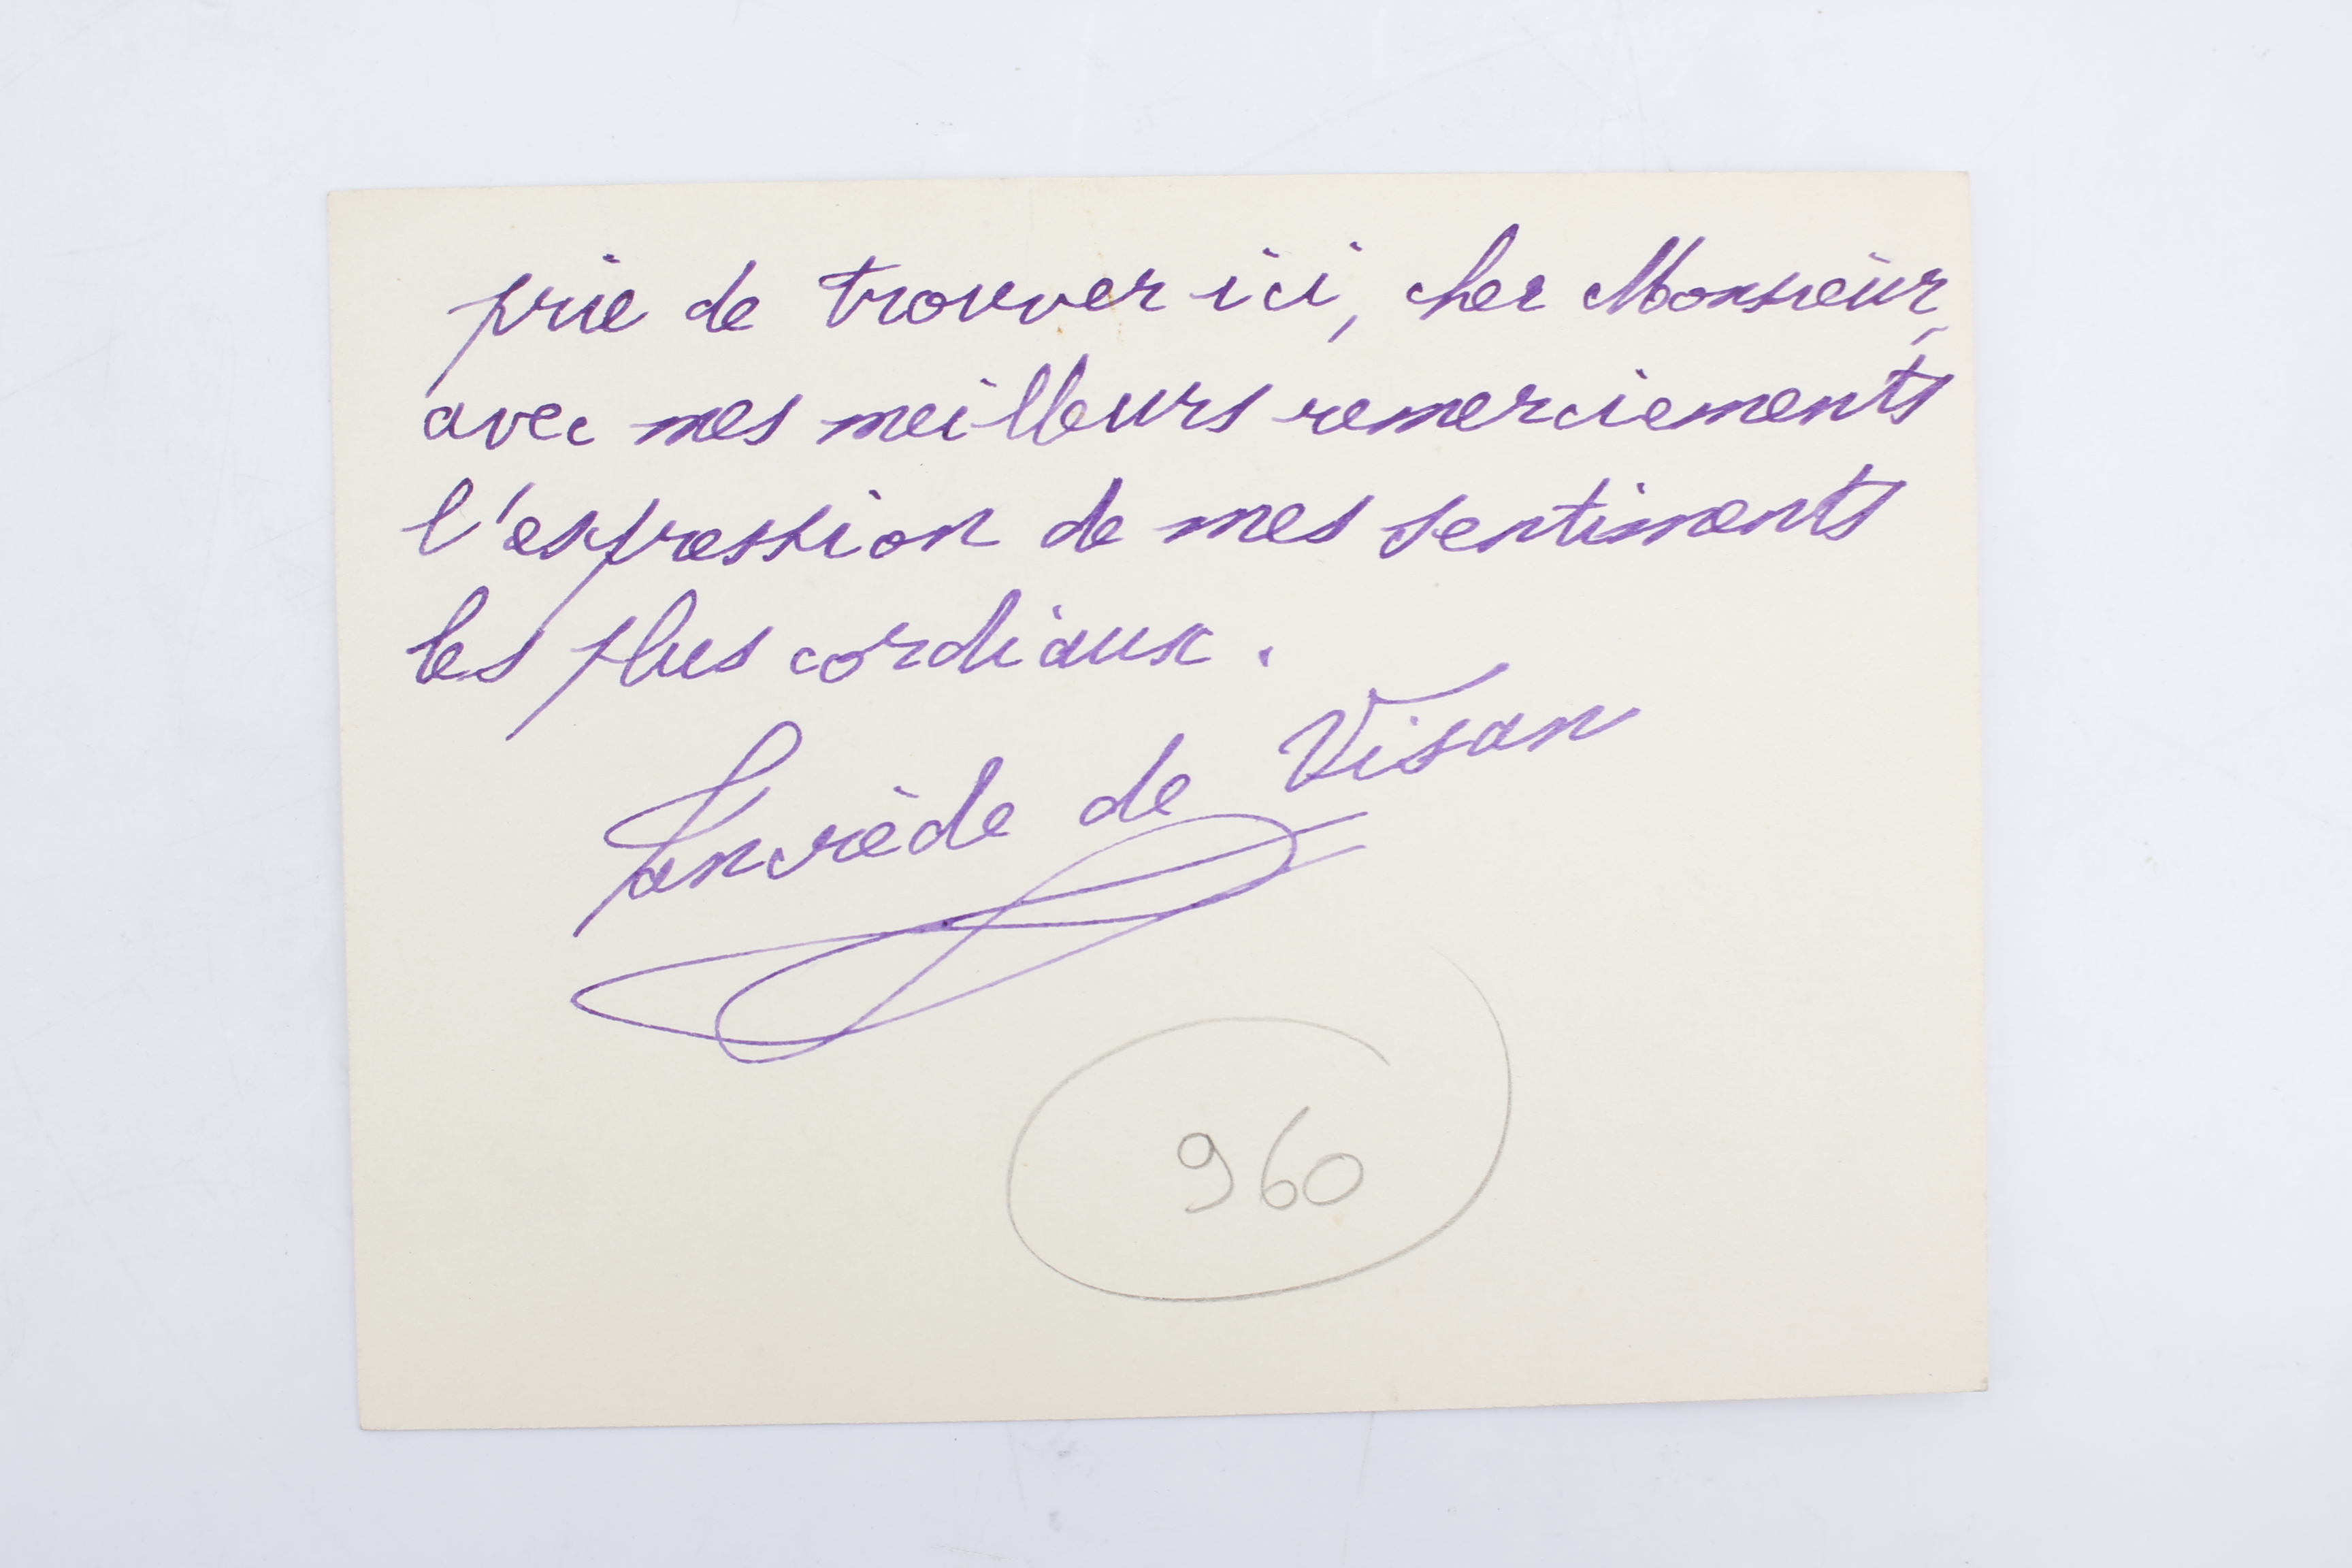 prie de trouver ici, cher Monsieur,
avec mes meilleurs remerciements
l'expression de mes sentiments
les plus cordiaux.
Tancrède de Visan
960